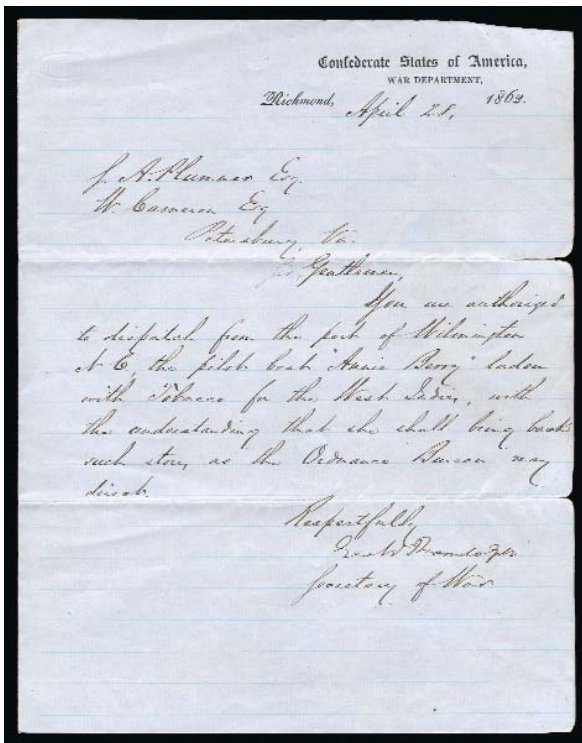 Confederate States of America,
WAR DEPARTMENT,
Richmond, April 28, 1862.
J. A. Plummer Esq.
W. Cameron Esq
Petersburg, Va.
Gentlemen,
You are authorized
to dispatch from the port of Wilmington
N C, the pilot boat "Annie Berry" laden
with Tobacco for the West Indies, with
the understanding that she shall bring back
such stores as the Ordnance Bureau may
direct.
Respectfully
Geo W Randolph
Secretary of War